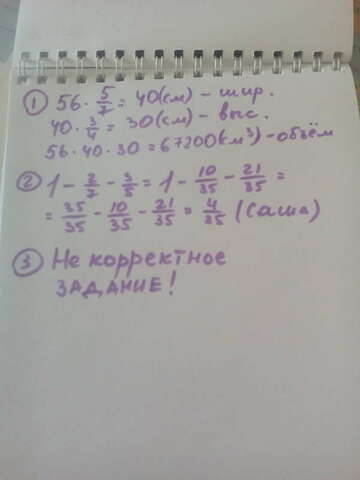 ① 56 · 5/7 = 40(см) – шир.
40 · 3/4 = 30(см) – выс.
56 · 40 · 30 = 67200(см³) – объём
② 1 – 2/7 – 3/5 = 1 – 10/35 – 21/35 =
= 35/35 – 10/35 – 21/35 = 4/35 (Саша)
③ Не корректное
ЗАДАНИЕ!